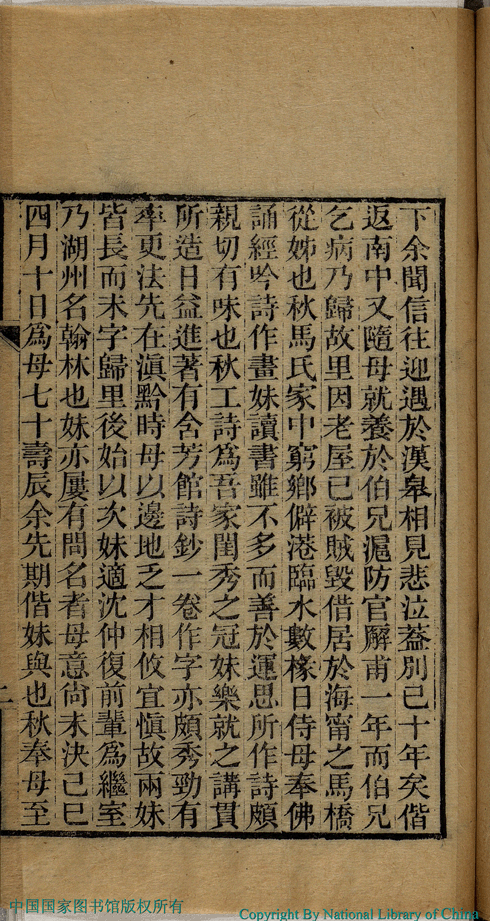 下余聞信往迎遇於漢皋相見悲泣蓋別已十年矣偕
返南中又隨母就養於伯兄滬防官廨甫一年而伯兄
乞病乃歸故里因老屋已被賊毀借居於海甯之馬橋
從姊也秋馬氏家中窮鄉僻港臨水數椽日侍母奉佛
誦經吟詩作畫妹讀書雖不多而善於運思所作詩頗
親切有味也秋工詩爲吾家閨秀之冠妹樂就之講貫
所造日益進著有含芳館詩鈔一卷作字亦頗秀勁有
率更法先在滇黔時母以邊地乏才相攸宜愼故兩妹
皆長而未字歸里後始以次妹適沈仲復前輩爲繼室
乃湖州名翰林也妹亦屢有問名者母意尙未決己巳
四月十日爲母七十壽辰余先期偕妹與也秋奉母至
二
中国国家图书馆版权所有
Copyright By National Library of China